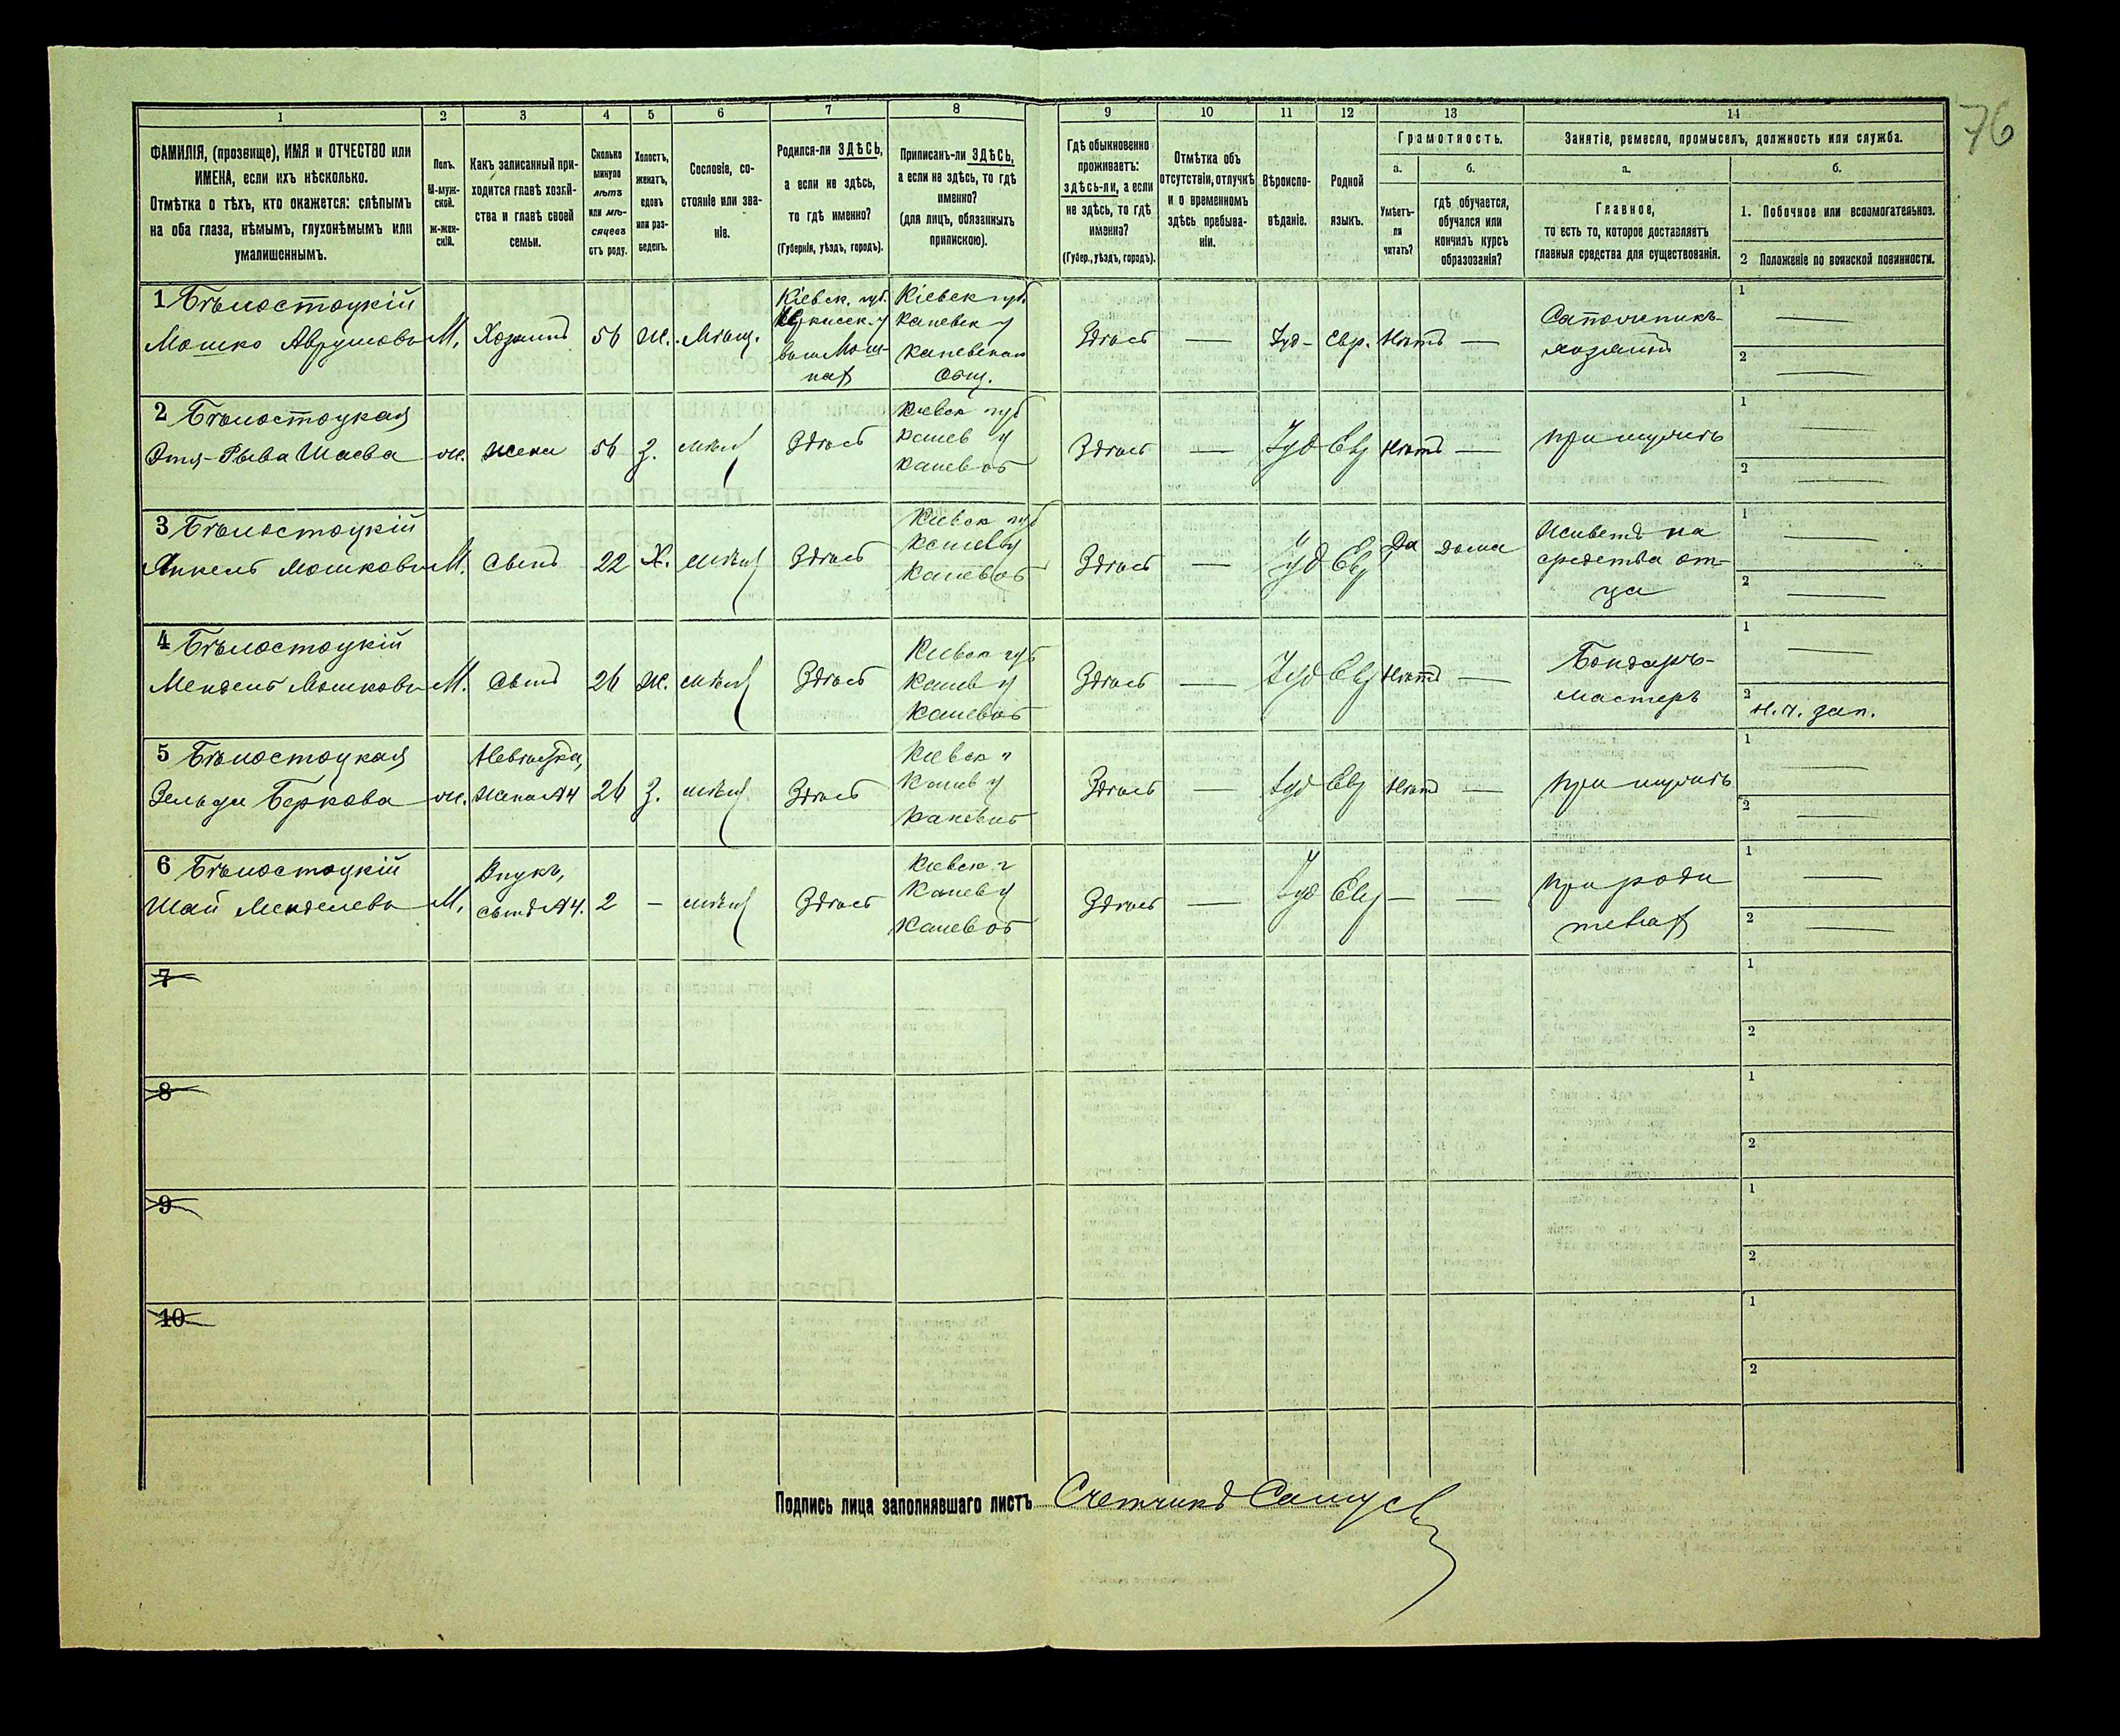 76
1
2
3
4
5
6
7
8
9
10
11
12
13
14
ФАМИЛІЯ, (прозвище), ИМЯ и ОТЧЕСТВО или
ИМЕНА, если ихъ нѣсколько.
Отмѣтка о тѣхъ, кто окажется: слѣпымъ
на оба глаза, нѣмымъ, глухонѣмымъ или
умалишеннымъ.
Полъ.
М-муж-
ской.
ж-жен-
скій.
Какъ записанный при-
ходится главѣ хозяй-
ства и главѣ своей
семьи.
Сколько
минуло
лѣтъ
или мѣ-
сяцевъ
отъ роду.
Холостъ,
женатъ,
вдовъ
или раз-
веденъ.
Сословіе, со-
стояніе или зва-
ніе.
Родился-ли ЗДѢСЬ,
а если не здѣсь,
то гдѣ именно?
(Губернія, уѣздъ, городъ).
Приписанъ-ли ЗДѢСЬ,
а если не здѣсь, то гдѣ
именно?
(для лицъ, обязанныхъ
припискою).
Гдѣ обыкновенно
проживаетъ:
здѣсь-ли, а если
не здѣсь, то гдѣ
именно?
(Губер., уѣздъ, городъ).
Отмѣтка объ
отсутствіи, отлучкѣ
и о временномъ
здѣсь пребыва-
ніи.
Вѣроиспо-
вѣданіе.
Родной
языкъ.
Грамотность.
а.
Умѣетъ-
ли
читать?
б.
гдѣ обучается,
обучался или
кончилъ курсъ
образованія?
Занятіе, ремесло, промыселъ, должность или служба.
а.
Главное,
то есть то, которое доставляетъ
главныя средства для существованія.
б.
1. Побочное или вспомогательное.
2 Положеніе по воинской повинности.
1 Бѣлостоцкій
Мошко Аврумовъ
М.
Хозяинъ
56
ж.
Мѣщ.
Кіевск. губ.
Кіевск губ.
Каневск у
Каневском
Общ.
Здѣсь
—
Іуд-
Евр.
Нѣтъ
—
Сапожникъ-
хозяинъ
1 —
2 —
2 Бѣлостоцкая
Этя-Рыва Шаева
ж.
жена
56
З.
мѣщ
Здѣсь
Киевск губ
Канев у
Канев об
Здѣсь
—
Іуд
Евр
Нѣтъ
—
при мужѣ
1 —
2 —
3 Бѣлостоцкій
Янкель Мошковъ
М.
Сынъ
22
Х.
мѣщ
Здѣсь
Киевск губ
Канев у
Канев об
Здѣсь
—
Іуд
Евр
Да
дома
Живетъ на
средства от-
ца
1 —
2 —
4 Бѣлостоцкій
Мендель Мошковъ
М.
Сынъ
26
Ж.
мѣщ
Здѣсь
Киевск губ
Канев у
Канев об
Здѣсь
—
Іуд
Евр
Нѣтъ
—
Бондарь-
мастеръ
1 —
2 н. ч. зап.
5 Бѣлостоцкая
Зельда Беркова
ж.
Невѣстка,
жена №4
26
З.
мѣщ
Здѣсь
Киевск г
Канев у
Канев об
Здѣсь
—
Іуд
Евр
Нѣтъ
—
при мужѣ
1 —
2 —
6 Бѣлостоцкій
Шай Менделевъ
М.
Внукъ,
сынъ №4.
2
—
мѣщ
Здѣсь
Киевск г
Канев у
Канев об
Здѣсь
—
Іуд
Евр
—
—
при роди
телях
1 —
2 —
7
1
2
8
1
2
9
1
2
10
1
2
Подпись лица заполнявшаго листъ Счетчикъ